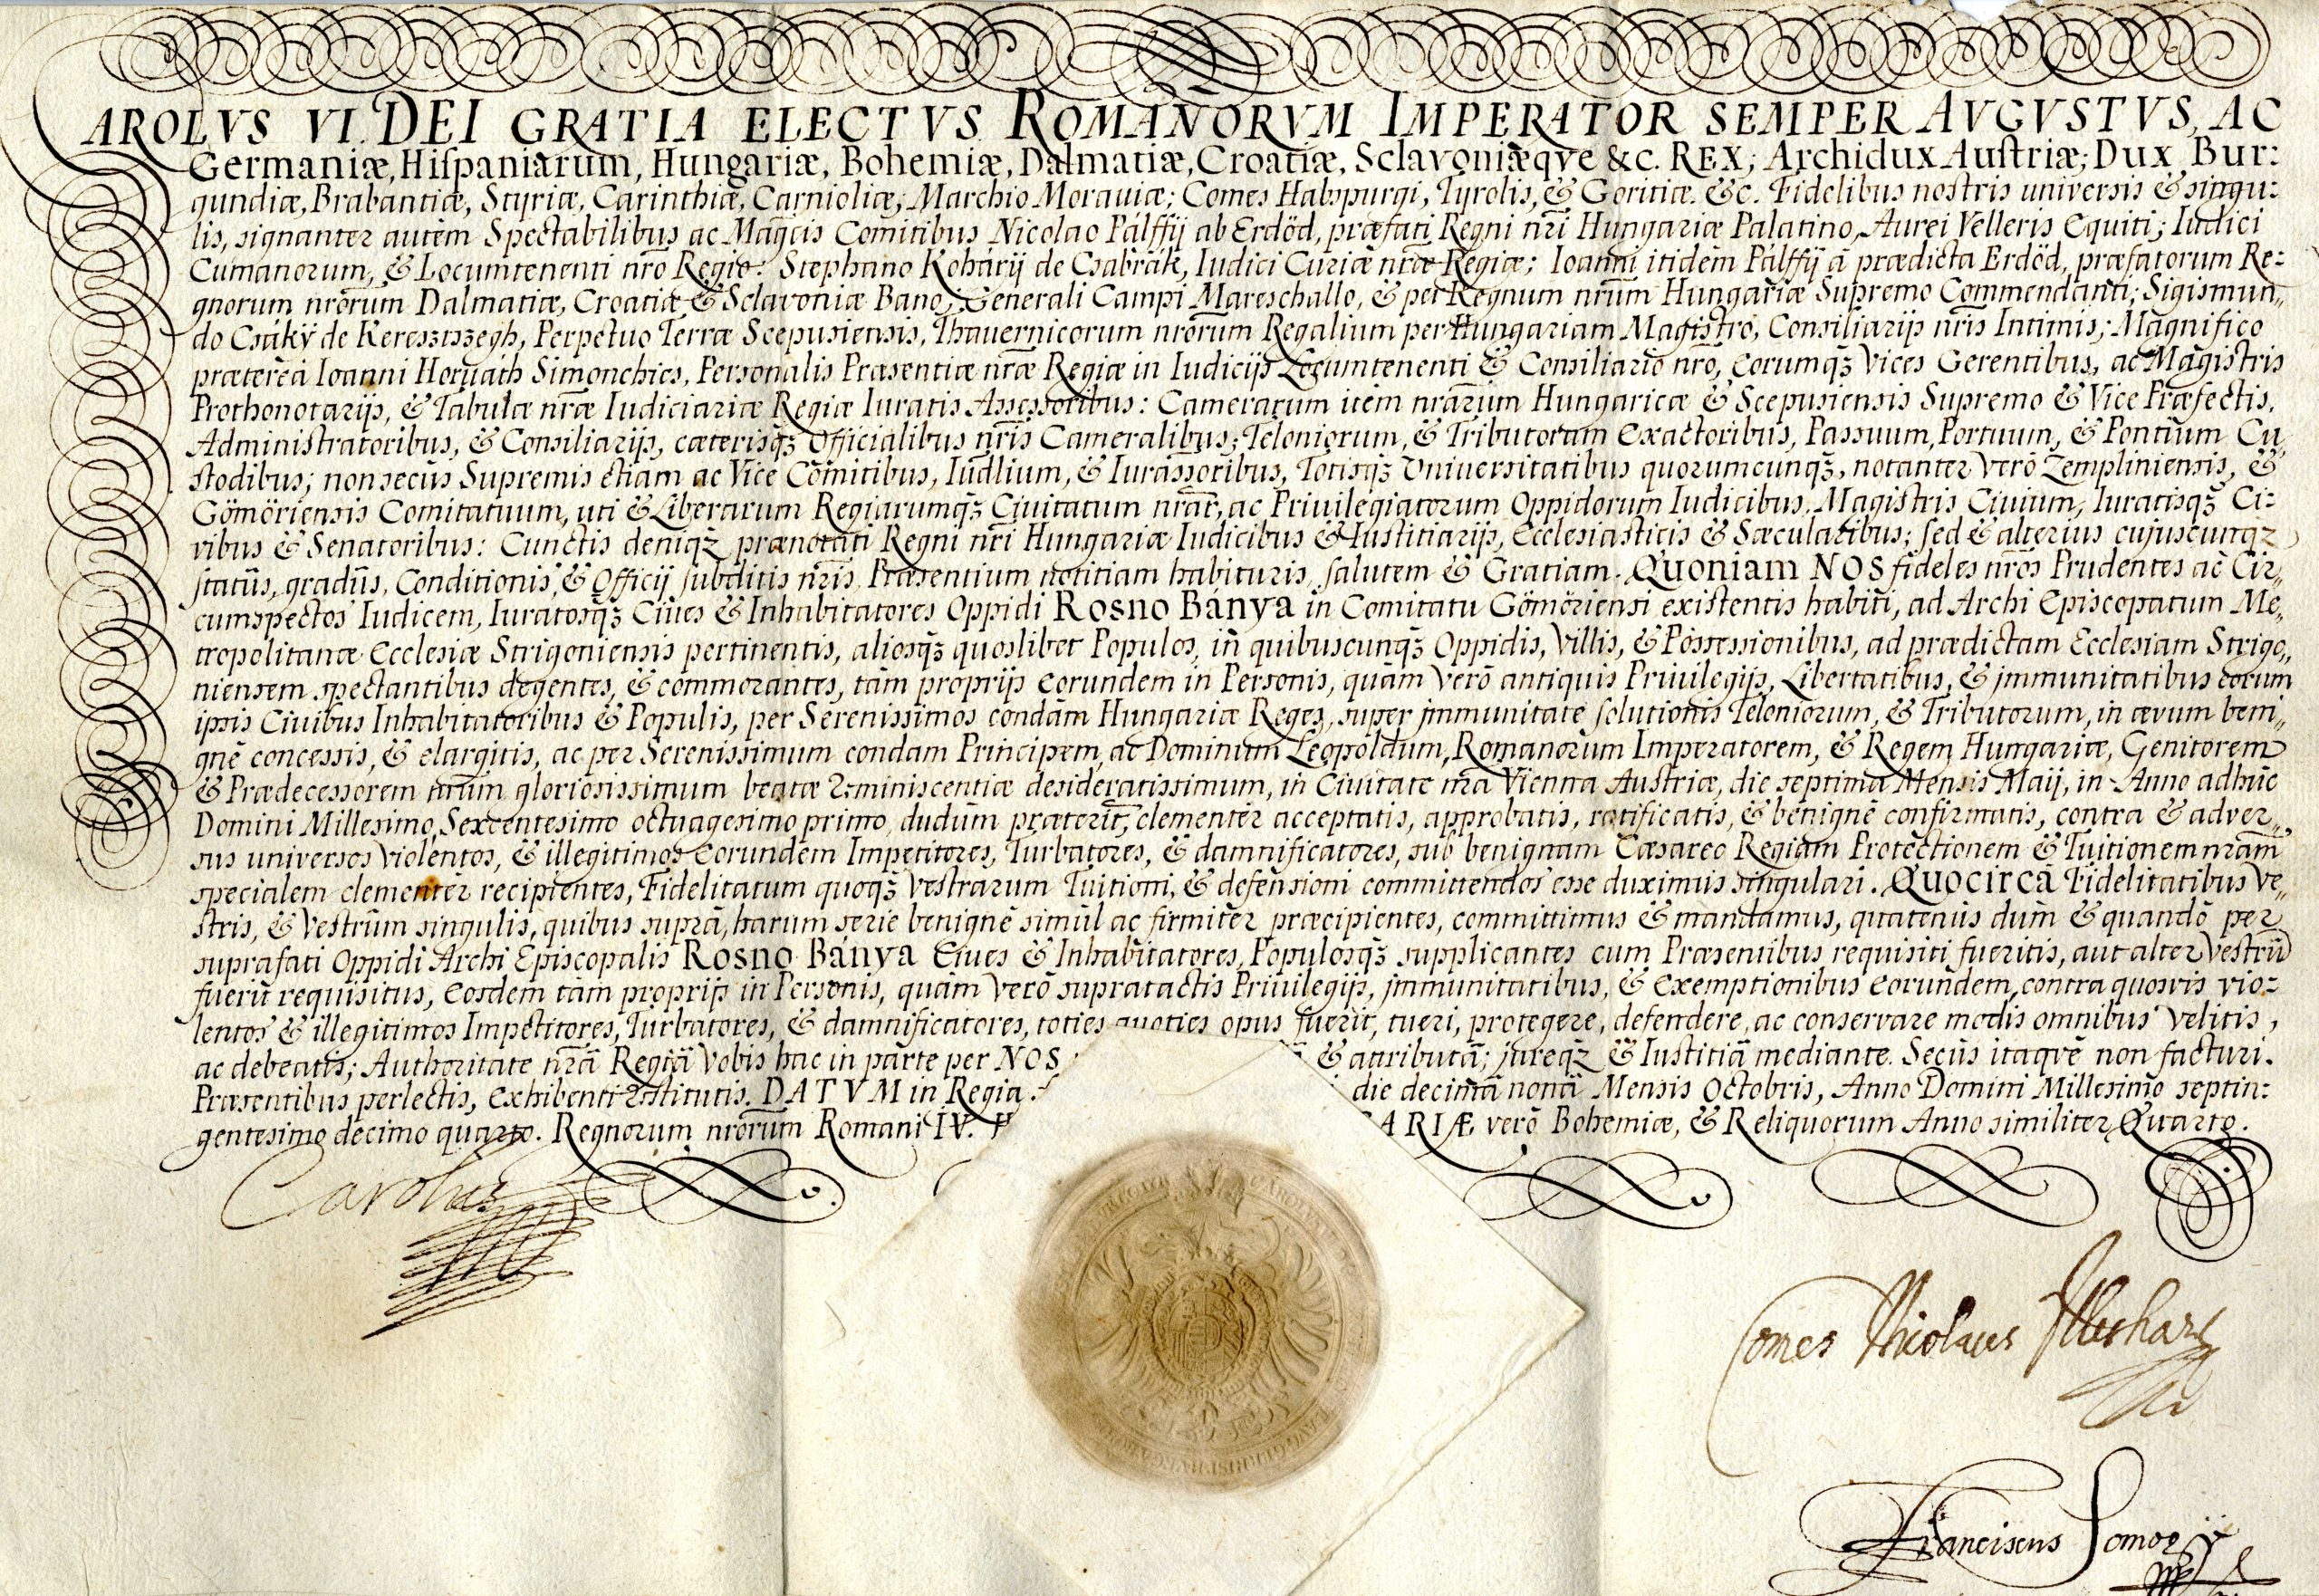 CAROLVS VI. DEI GRATIA ELECTVS ROMANORVM IMPERATOR SEMPER AVGVSTVS, AC
Germaniæ, Hiſpaniarum, Hungariæ, Bohemiæ, Dalmatiæ, Croatiæ, Sclavoniæqve &c. REX; Archidux Auſtriæ; Dux Bur:
gundiæ, Brabantiæ, Styriæ, Carinthiæ, Carnioliæ; Marchio Morauiæ; Comes Habspurgi, Tyrolis, & Goritiæ. &c. Fidelibus nostris universis & singu:
lis, signanter autem Spectabilibus ac Magcis Comitibus Nicolao Pálffÿ ab Erdöd, præfati Regni nrī Hungariæ Palatino, Aurei Velleris Equiti; Iudici
Cumanorum, & Locumtenenti nrō Regio: Stephano Kohárÿ de Csábrák, Iudici Curiæ nræ Regiæ; Ioanni itidem Pálffÿ ā prædicta Erdöd, præfatorum Re:
gnorum nrōrum Dalmatiæ, Croatiæ & Sclavoniæ Bano, Generali Campi Mareschallo, & per Regnum nrūm Hungariæ Supremo Commendanti; Sigismun„
do Csáky de Keresztszegh, Perpetuo Terræ Scepusiensis, Thavernicorum nrōrum Regalium per Hungariam Magistro, Consiliarijs nrīs Intimis; Magnifico
præterea Ioanni Horuáth Simonchics, Personalis Præsentiæ nræ Regiæ in Iudicijs Locumtenenti & Consiliario nrō, eorumq3 Vices Gerentibus, ac Magistris
Prothonotarijs, & Tabulæ nræ Iudiciariæ Regiæ Iuratis Assessoribus: Camerarum item nrārum Hungaricæ & Scepusiensis Supremo & Vice Præfectis,
Administratoribus, & Consiliarijs, cæterisq3 Officialibus nrīs Cameralibus; Teloniorum, & Tributorum Exactoribus, Passuum, Portuum, & Pontium Cu„
stodibus; non secūs Supremis etiam ac Vice Comitibus, Iudlium, & Iurassoribus, Totisq3 Universitatibus quorumcunq3, notanter verō Zempliniensis, &
Gömöriensis Comitatuum, uti & Liberarum Regiarumq3 Civitatum nrār, ac Priuilegiatorum Oppidorum Iudicibus, Magistris Ciuium, Iuratisq3 Ci:
vibus & Senatoribus: Cunctis deniq3 prænotati Regni nrī Hungariæ Iudicibus & Iustitiarijs, Ecclesiasticis & Sæcularibus; sed & alterius cujuscunq3
status, gradūs, Conditionis, & Officij subditis nrīs, Præsentium notitiam habituris, salutem & Gratiam. Quoniam NOS fideles nrōs Prudentes ac Cir„
cumspectos Iudicem, Iuratosq3 Ciues & Inhabitatores Oppidi Rosno Bánya in Comitatu Gömöriensi existentis habiti, ad Archi Episcopatum Me„
tropolitanæ Ecclesiæ Strigoniensis pertinentis, aliosq3 quoslibet Populos, in quibuscunq3 Oppidis, Villis, & Possessionibus, ad prædictam Ecclesiam Strigo„
niensem spectantibus degentes, & commorantes, tām proprijs eorundem in Personis, quām verō antiquis Priuilegijs, Libertatibus, & jmmunitatibus eorum
ipsis Ciuibus Inhabitatoribus & Populis, per Serenissimos condam Hungariæ Reges, super jmmunitate solutionis Teloniorum, & Tributorum, in ævum beni„
gnē concessis, & elargitis, ac per Serenissimum condam Principem, ac Dominum Leopoldum, Romanorum Imperatorem, & Regem Hungariæ, Genitorem
& Prædecessorem nrūm gloriosissimum beatæ reminiscentiæ desideratissimum, in Ciuitate nrā Vienna Austriæ, die septima Mensis Maij, in Anno adhūc
Domini Millesimo, Sexcentesimo octuagesimo primo, dudūm præterit, clementēr acceptatis, approbatis, ratificatis, & benignē confirmatis, contra & adver„
sus universos violentos, & illegitimos Eorundem Impetitores, Turbatores, & damnificatores, sub benignam Cæsareo Regiam Protectionem & Tuitionem nrām
specialem clementēr recipientes, Fidelitatum quoq3 Vestrarum Tuitioni, & defensioni committendos esse duximus singulari. Quocircā Fidelitatibus Ve„
stris, & Vestrūm singulis, quibus suprā, harum serie benignē simūl ac firmitēr præcipientes, committimus & mandamus, quatenūs dum & quandō per
suprafati Oppidi Archi Episcopalis Rosno Bánya Ciues & Inhabitatores, Populosq3 supplicantes cum Præsentibus requisiti fueritis, aut alter Vestrū
fuerit requisitus, Eosdem tām proprijs in Personis, quām verō supratactis Priuilegijs, jmmunitatibus, & Exemptionibus eorundem, contra quosvis vio:
lentos & illegitimos Impetitores, Turbatores, & damnificatores, toties quoties opus fuerit, tueri, protegere, defendere, ac conservare modis omnibus velitis,
ac debeatis; Authoritate nrā Regiā Vobis hac in parte per NOS & attributā; jureq3 & Iustitiā mediante. Secūs itaqvē non facturi.
Præsentibus perlectis, Exhibenti restitutis. DATVM in Regia die decimā nonā Mensis Octobris, Anno Domini Millesimo septin:
gentesimo decimo quarto. Regnorum nrōrum Romani IV. ARIÆ verō Bohemiæ, & Reliquorum Anno similiter Quarto.
Carolus
Comes Nicolaus Illeshazy
Franciscus Somogÿ